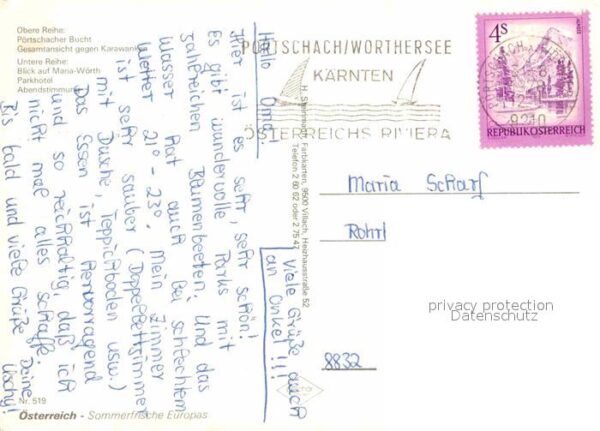 Obere Reihe:
Pörtschacher Bucht
Gesamtansicht gegen Karawanken
Untere Reihe:
Blick auf Maria-Wörth
Parkhotel
Abendstimmung
Hallo Omi!
Hier ist es sehr, sehr schön!
Es gibt wundervolle Parks mit
zahlreichen Blumenbeeten. Und das
Wasser hat auch bei schlechtem
Wetter 21° - 23°. Mein Zimmer
ist sehr sauber (Doppelbettzimmer
mit Dusche, Teppichboden usw.)
Das Essen ist hervorragend
und so reichhaltig, daß ich
nicht mal alles schaffe.
Bis bald und viele Grüße Deine
Uschy!
Viele Grüße auch
an Onkel!!!
PÖRTSCHACH/WÖRTHERSEE
KÄRNTEN
ÖSTERREICHS RIVIERA
9210
4S
REPUBLIK ÖSTERREICH
H. Farbkarten, 9500 Villach, Heizhausstraße 52
Telefon 2 60 62 oder 2 75 47
Maria Scharf
Rohrl
8832
privacy protection
Datenschutz
Nr. 519
Österreich - Sommerfrische Europas